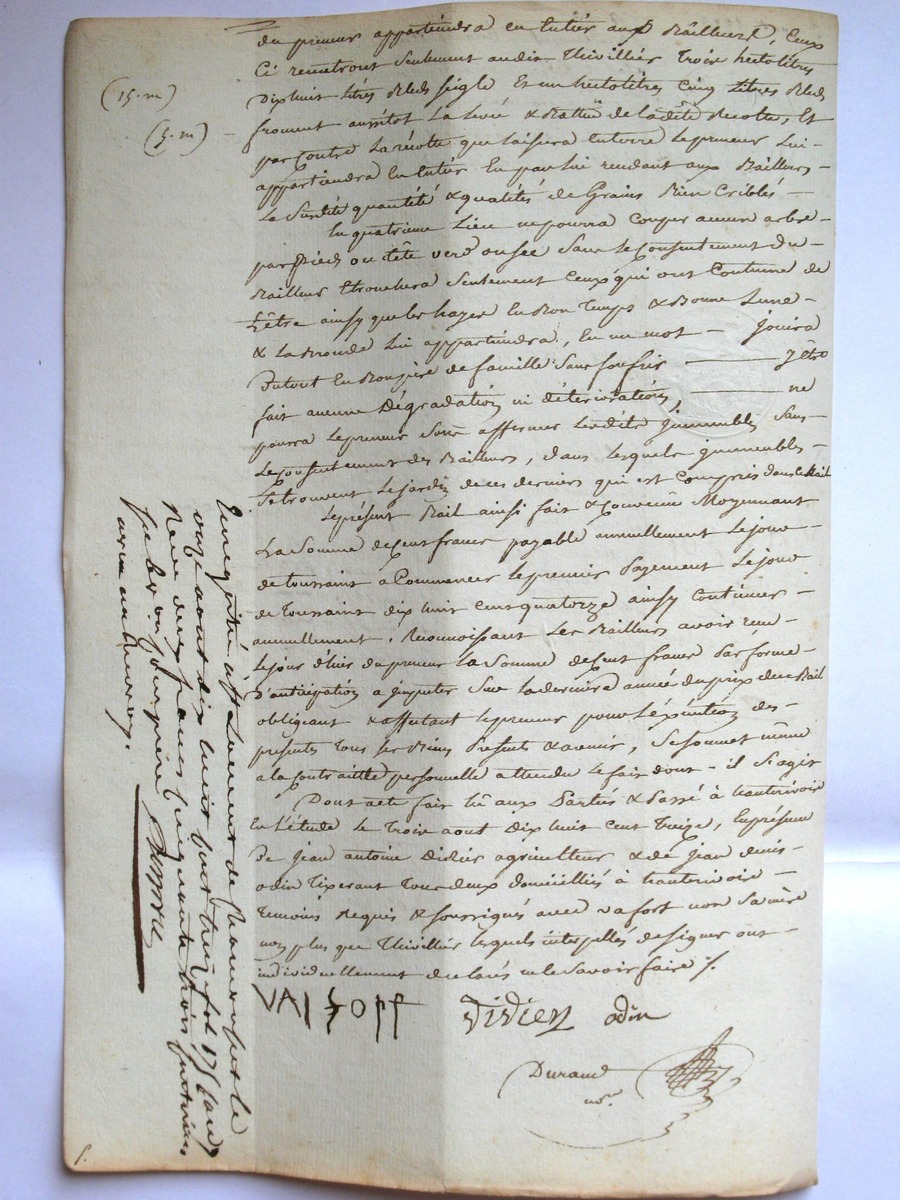 du preneur appartiendra en entier aux Bailleurs, Ceux
Ci remetront Seulement audit Thivillier Trois hectolitres
Dixhuit litres Bled seigle Et un hectolitres Cinq litres Bled
froment aussitot La levé & Battue de la dite Recolte, Et
par Contre La récolte que laissera Enterre Le preneur Lui
appartiendra En Entier En par lui rendant aux Bailleurs
La Susdite quantité & qualités de Grains Bien Criblés
En quatrieme Lieu ne pourra Couper aucun arbre
par pied ou tête verd ou sec Sans Le Consentement du
Bailleur Etronchera Seulement Ceux qui ont Coutume de
L'être ainsy que les hayes En Bon Temps & Bonne Lune
& La Lui appartiendra, En un mot Jouira
Dutout En Bon père de famille Sans souffrir y être
fait aucune Dégradation ni détérioration, ne
pourra Le preneur Sous affermer Lesdits Immeubles Sans
Le Consentement des Bailleurs, dans lesquels immeubles
Se trouvent Le Jardin de ces derniers qui est Compris dans le Bail
Le présent Bail ainsi fait & Convenu Moyennant
La Somme de Cent francs payable annuellement Le jour
de toussaint a Commencer Le premier payement Le jour
de Toussaint dix huit cent quatorze ainsy Continuer
annuellement. Reconnoissant Les Bailleurs avoir recu
Le jour d'hier du preneur La Somme de Cent francs par forme
D'anticipation a imputer Sur La derniere année du prix du Bail
obligeant & affectant Le preneur pour L'éxécution des
presentes Tous Ses Biens Presents & avenir, Se soumet même
a la Contrainte personnelle attendu Le fait dont il S'agit
Dont acte fait lû aux Parties & Passé à hauterivoire
En L'étude Le Trois aout Dix huit Cent Treize, En présence
De Jean antoine Didier agriculteur & de Jean denis
odin Tixerant Tous deux domiciliés à hauterivoire
Temoins Requis & soussignés avec vafort non Sa mère
non plus que Thivillier lesquels interpellés de signer ont
individuellement declarés ne le Savoir faire /.
Didier odin
Durand
nore
(15. m)
(5. m)
Enregistré à St Laurent de Chamousset le
onze aout dix huit cent treize fol 175
Recu deux francs cinquante trois centimes